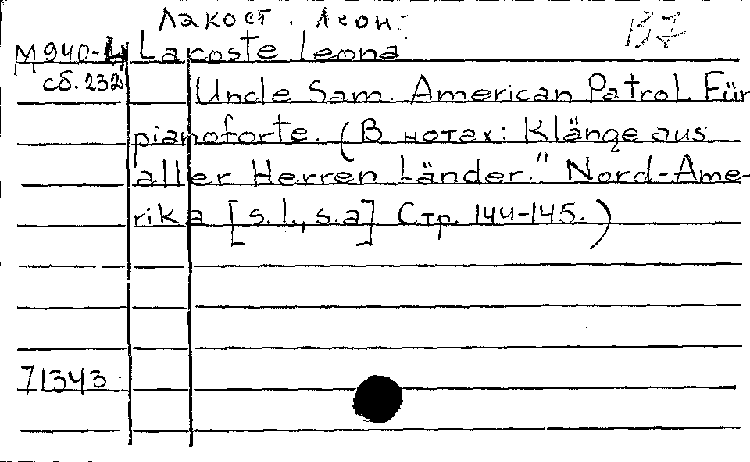 Лакост Леон
В7
М940-4 Lacoste Leona
сб. 232
Uncle Sam. American Patrol Für
pianoforte. (В нотах: Klänge aus
aller Herren Länder." Nord-Ame-
rika [s.l., s.a] Стр. 144-145.)
71343